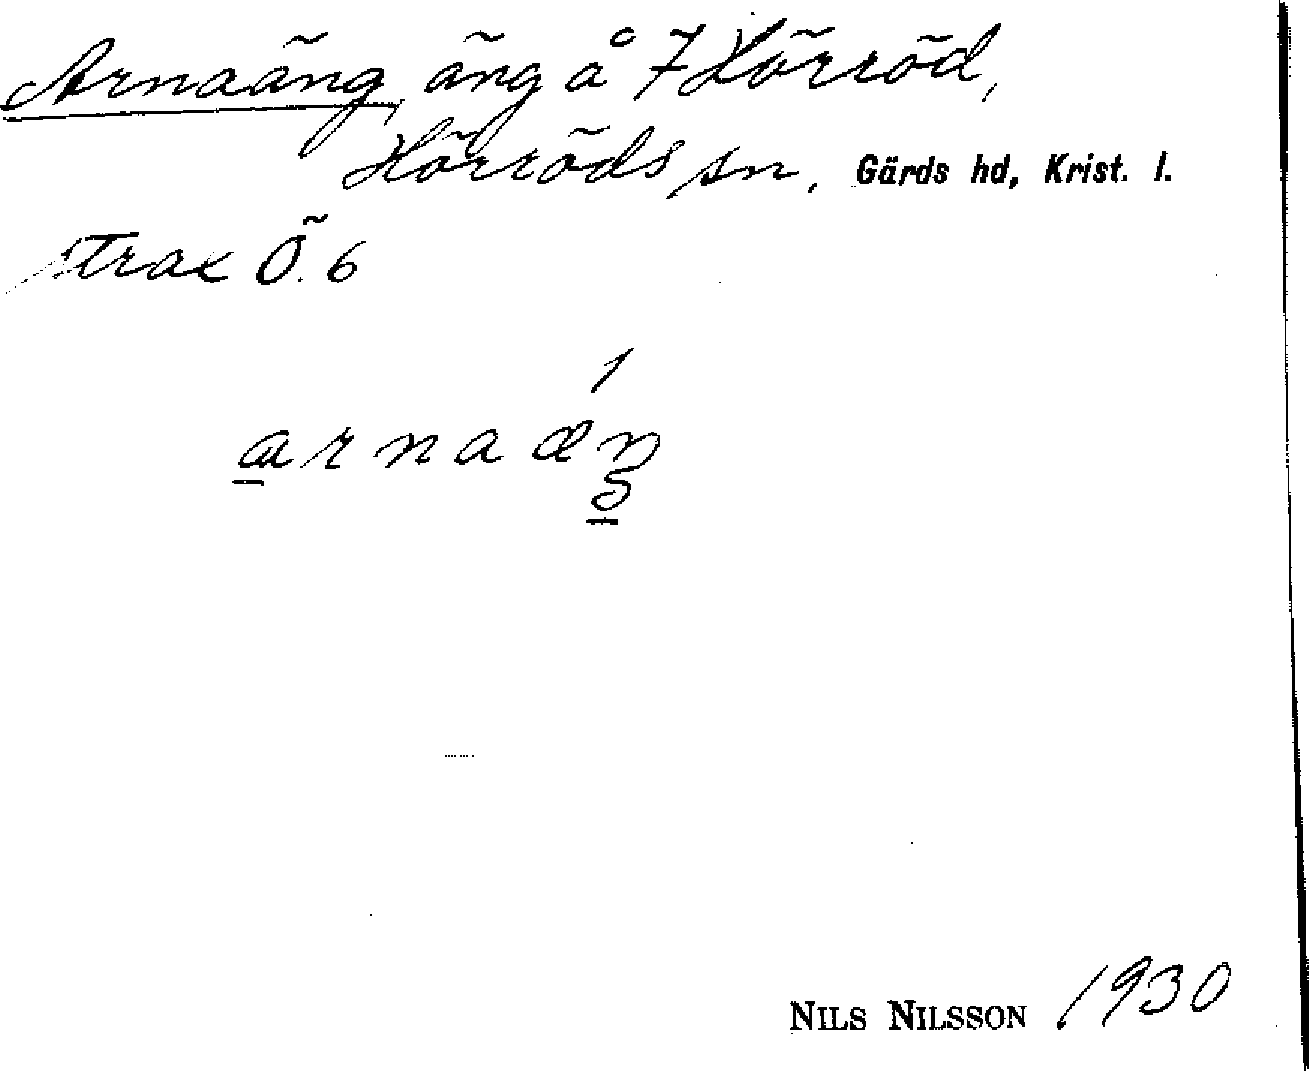 Arnaäng, äng å 7 Hörröd,
Hörröds sn, Gärds hd, Krist. l.
strax Ö. 6
arnaæŋ
NILS NILSSON 1930